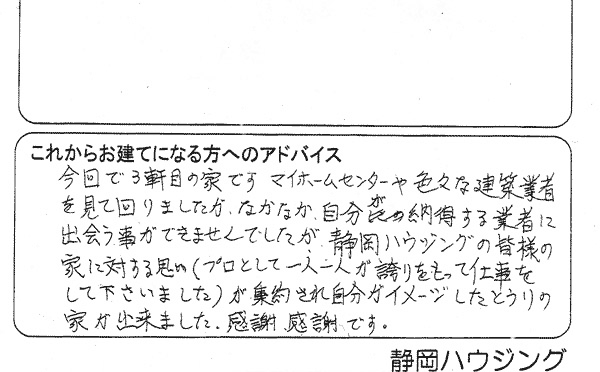 これからお建てになる方へのアドバイス
今回で3軒目の家です マイホームセンターや色々な建築業者
を見て回りましたが、なかなか自分が納得する業者に
出会う事ができませんでしたが、静岡ハウジングの皆様の
家に対する思い(プロとして一人一人が誇りをもって仕事を
して下さいました)が集約され自分がイメージしたとうりの
家が出来ました。感謝感謝です。
静岡ハウジング